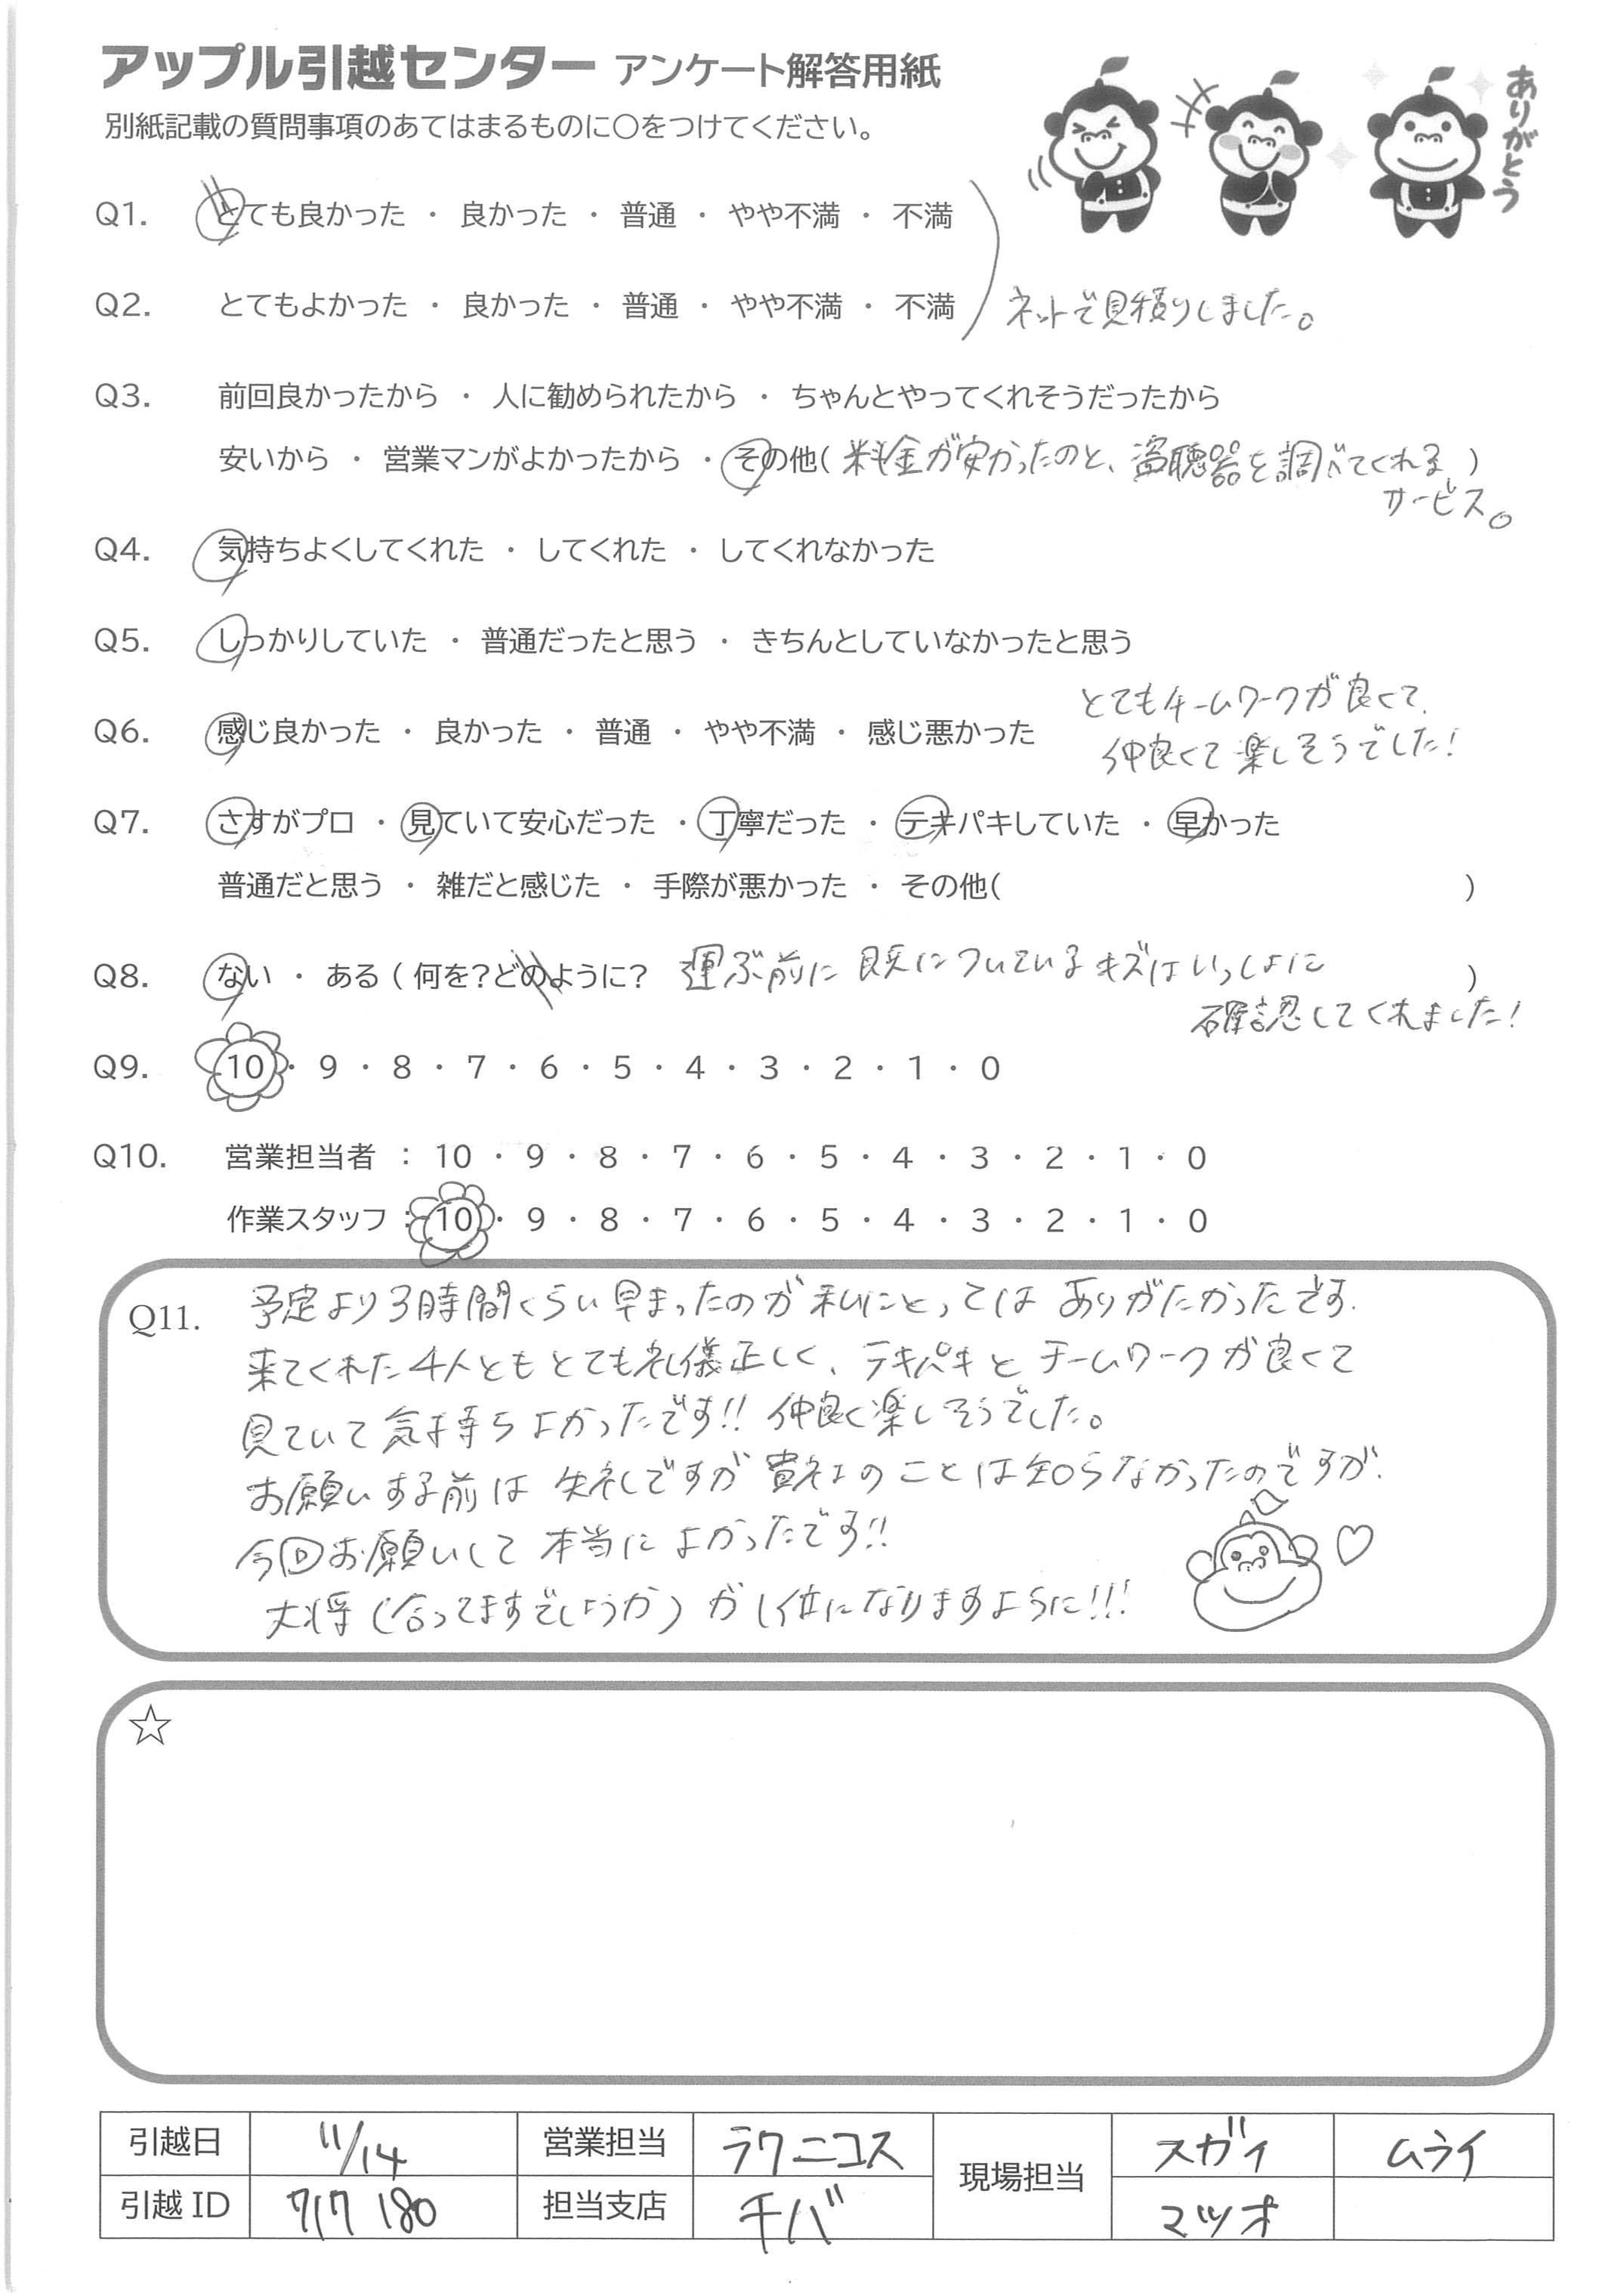 アップル引越センター アンケート解答用紙
ありがとう
別紙記載の質問事項のあてはまるものに○をつけてください。
Q1. とても良かった ・ 良かった ・ 普通 ・ やや不満 ・ 不満
Q2. とてもよかった ・ 良かった ・ 普通 ・ やや不満 ・ 不満 ネットで見積りしました。
Q3. 前回良かったから ・ 人に勧められたから ・ ちゃんとやってくれそうだったから
安いから ・ 営業マンがよかったから ・ その他( 料金が安かったのと、盗聴器を調べてくれる )
サービス。
Q4. 気持ちよくしてくれた ・ してくれた ・ してくれなかった
Q5. しっかりしていた ・ 普通だったと思う ・ きちんとしていなかったと思う
とてもチームワークが良くて、
Q6. 感じ良かった ・ 良かった ・ 普通 ・ やや不満 ・ 感じ悪かった
仲良くて楽しそうでした!
Q7. さすがプロ ・ 見ていて安心だった ・ 丁寧だった ・ テキパキしていた ・ 早かった
普通だと思う ・ 雑だと感じた ・ 手際が悪かった ・ その他( )
Q8. ない ・ ある ( 何を?どのように? 運ぶ前に既についているキズはいっしょに )
確認してくれました!
Q9. 10 ・ 9 ・ 8 ・ 7 ・ 6 ・ 5 ・ 4 ・ 3 ・ 2 ・ 1 ・ 0
Q10. 営業担当者 : 10 ・ 9 ・ 8 ・ 7 ・ 6 ・ 5 ・ 4 ・ 3 ・ 2 ・ 1 ・ 0
作業スタッフ : 10 ・ 9 ・ 8 ・ 7 ・ 6 ・ 5 ・ 4 ・ 3 ・ 2 ・ 1 ・ 0
Q11. 予定より3時間くらい早まったのが私にとっては ありがたかったです.
来てくれた4人ともとても礼儀正しく、テキパキとチームワークが良くて
見ていて気持ちよかったです!! 仲良く楽しそうでした。
お願いする前は失礼ですが貴社のことは知らなかったのですが、
今回お願いして本当によかったです!!
大将(合ってますでしょうか)が1位になりますように!!!
☆
引越日 11/14 営業担当 ラクニコス 現場担当 スガイ ムライ
引越ID 717 180 担当支店 チバ マツオ